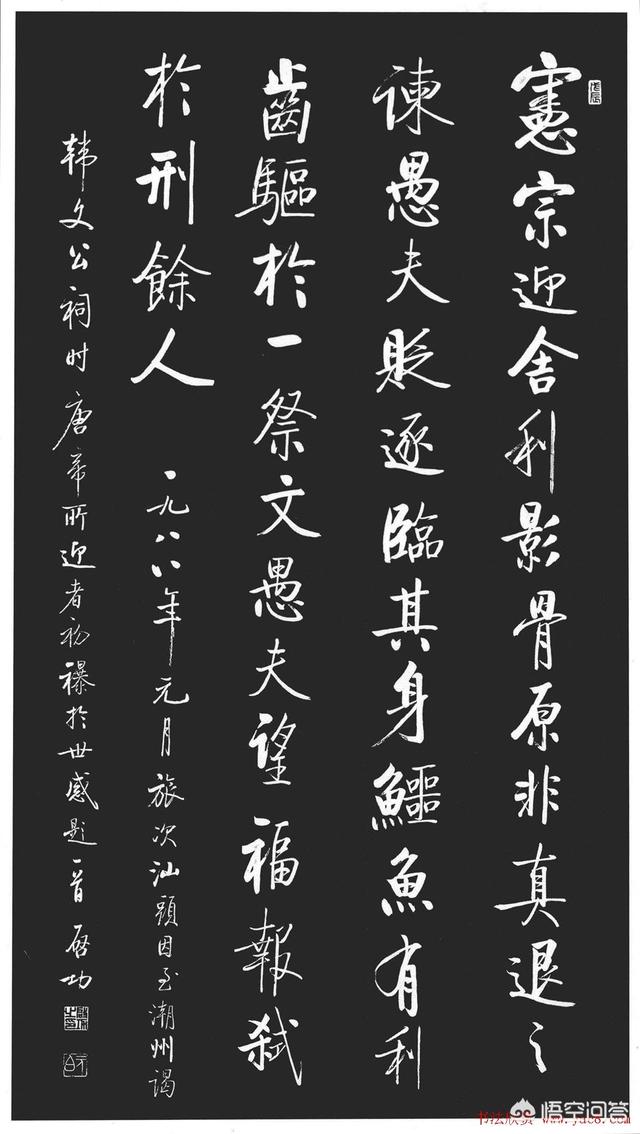 憲宗迎舍利影骨原非真退之
諫愚夫貶逐臨其身鱷魚有利
齒驅於一祭文愚夫望福報弑
於刑餘人
一九八八年元月旅次汕頭因至潮州謁
韩文公祠时唐帝所迎者初襮於世感题一首 启功
戊辰
书法欣赏 www.yac8.com
悟空问答